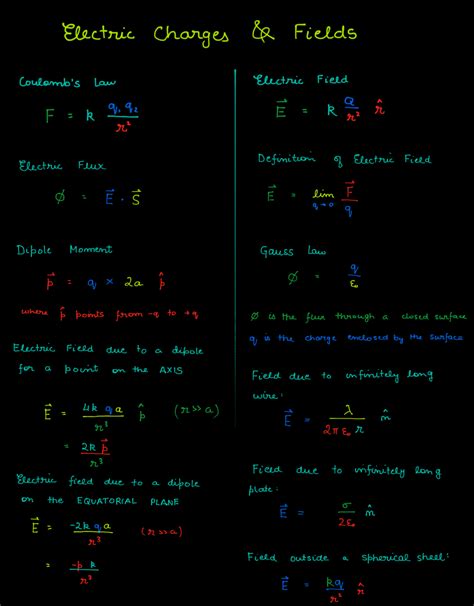 Electric Charges & Fields
Coulomb's Law
F = k q₁ q₂ / r²
Electric Flux
∅ = E⃗ . S⃗
Dipole Moment
p⃗ = q × 2a p̂
where p⃗ points from -q to +q
Electric Field due to a dipole
for a point on the AXIS
E⃗ = 4k q a / r³ p̂ (r >> a)
= 2k p⃗ / r³
Electric field due to a dipole
on the EQUATORIAL PLANE
E⃗ = -2k q a / r³ (r >> a)
= -p k / r³
Electric Field
E⃗ = k Q / r² r̂
Definition of Electric Field
E⃗ = lim q→0 F⃗ / q
Gauss Law
∅ = q / ε₀
∅ is the flux through a closed surface
q is the charge enclosed by the surface
Field due to infinitely long
wire:
E⃗ = λ / 2πε₀ r n̂
Field due to infinitely long
plate:
E⃗ = σ / 2ε₀ n̂
Field outside a spherical shell:
E⃗ = kq / r² r̂